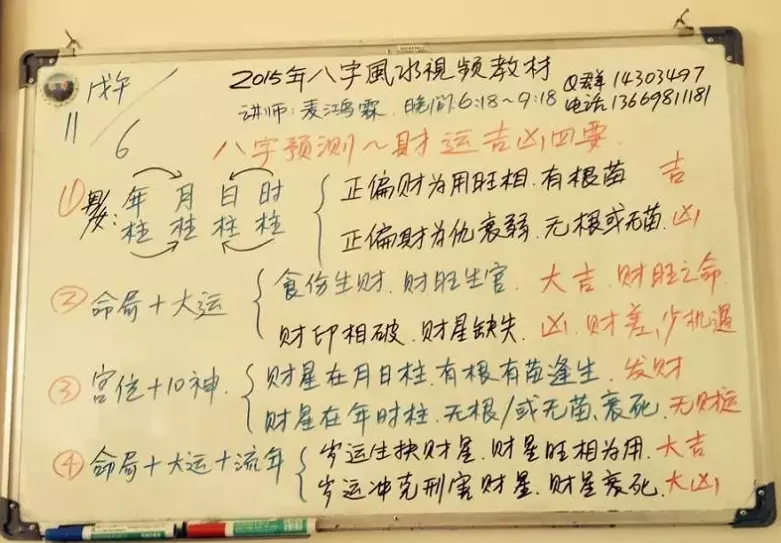 戊午
11/6
2015年八字風水視频教材
Q群 14303497
讲师:麦鴻霖 晚间:6:18~9:18
电话:13669811181
八字预测~财运吉凶四要
① 男女: 年柱 月柱 日柱 时柱
正偏财为用旺相.有根苗 吉
正偏财为仇衰弱.无根或无苗.凶
② 命局+大运
食伤生财.财旺生官. 大吉.财旺之命.
财印相破.财星缺失. 凶.财差,少机遇
③ 宫位+10神.
财星在月日柱.有根有苗逢生. 发财
财星在年时柱.无根/或无苗、衰死.无财运
④ 命局+大运+流年
岁运生扶财星.财星旺相为用.大吉
岁运冲克刑害财星.财星衰死.大凶